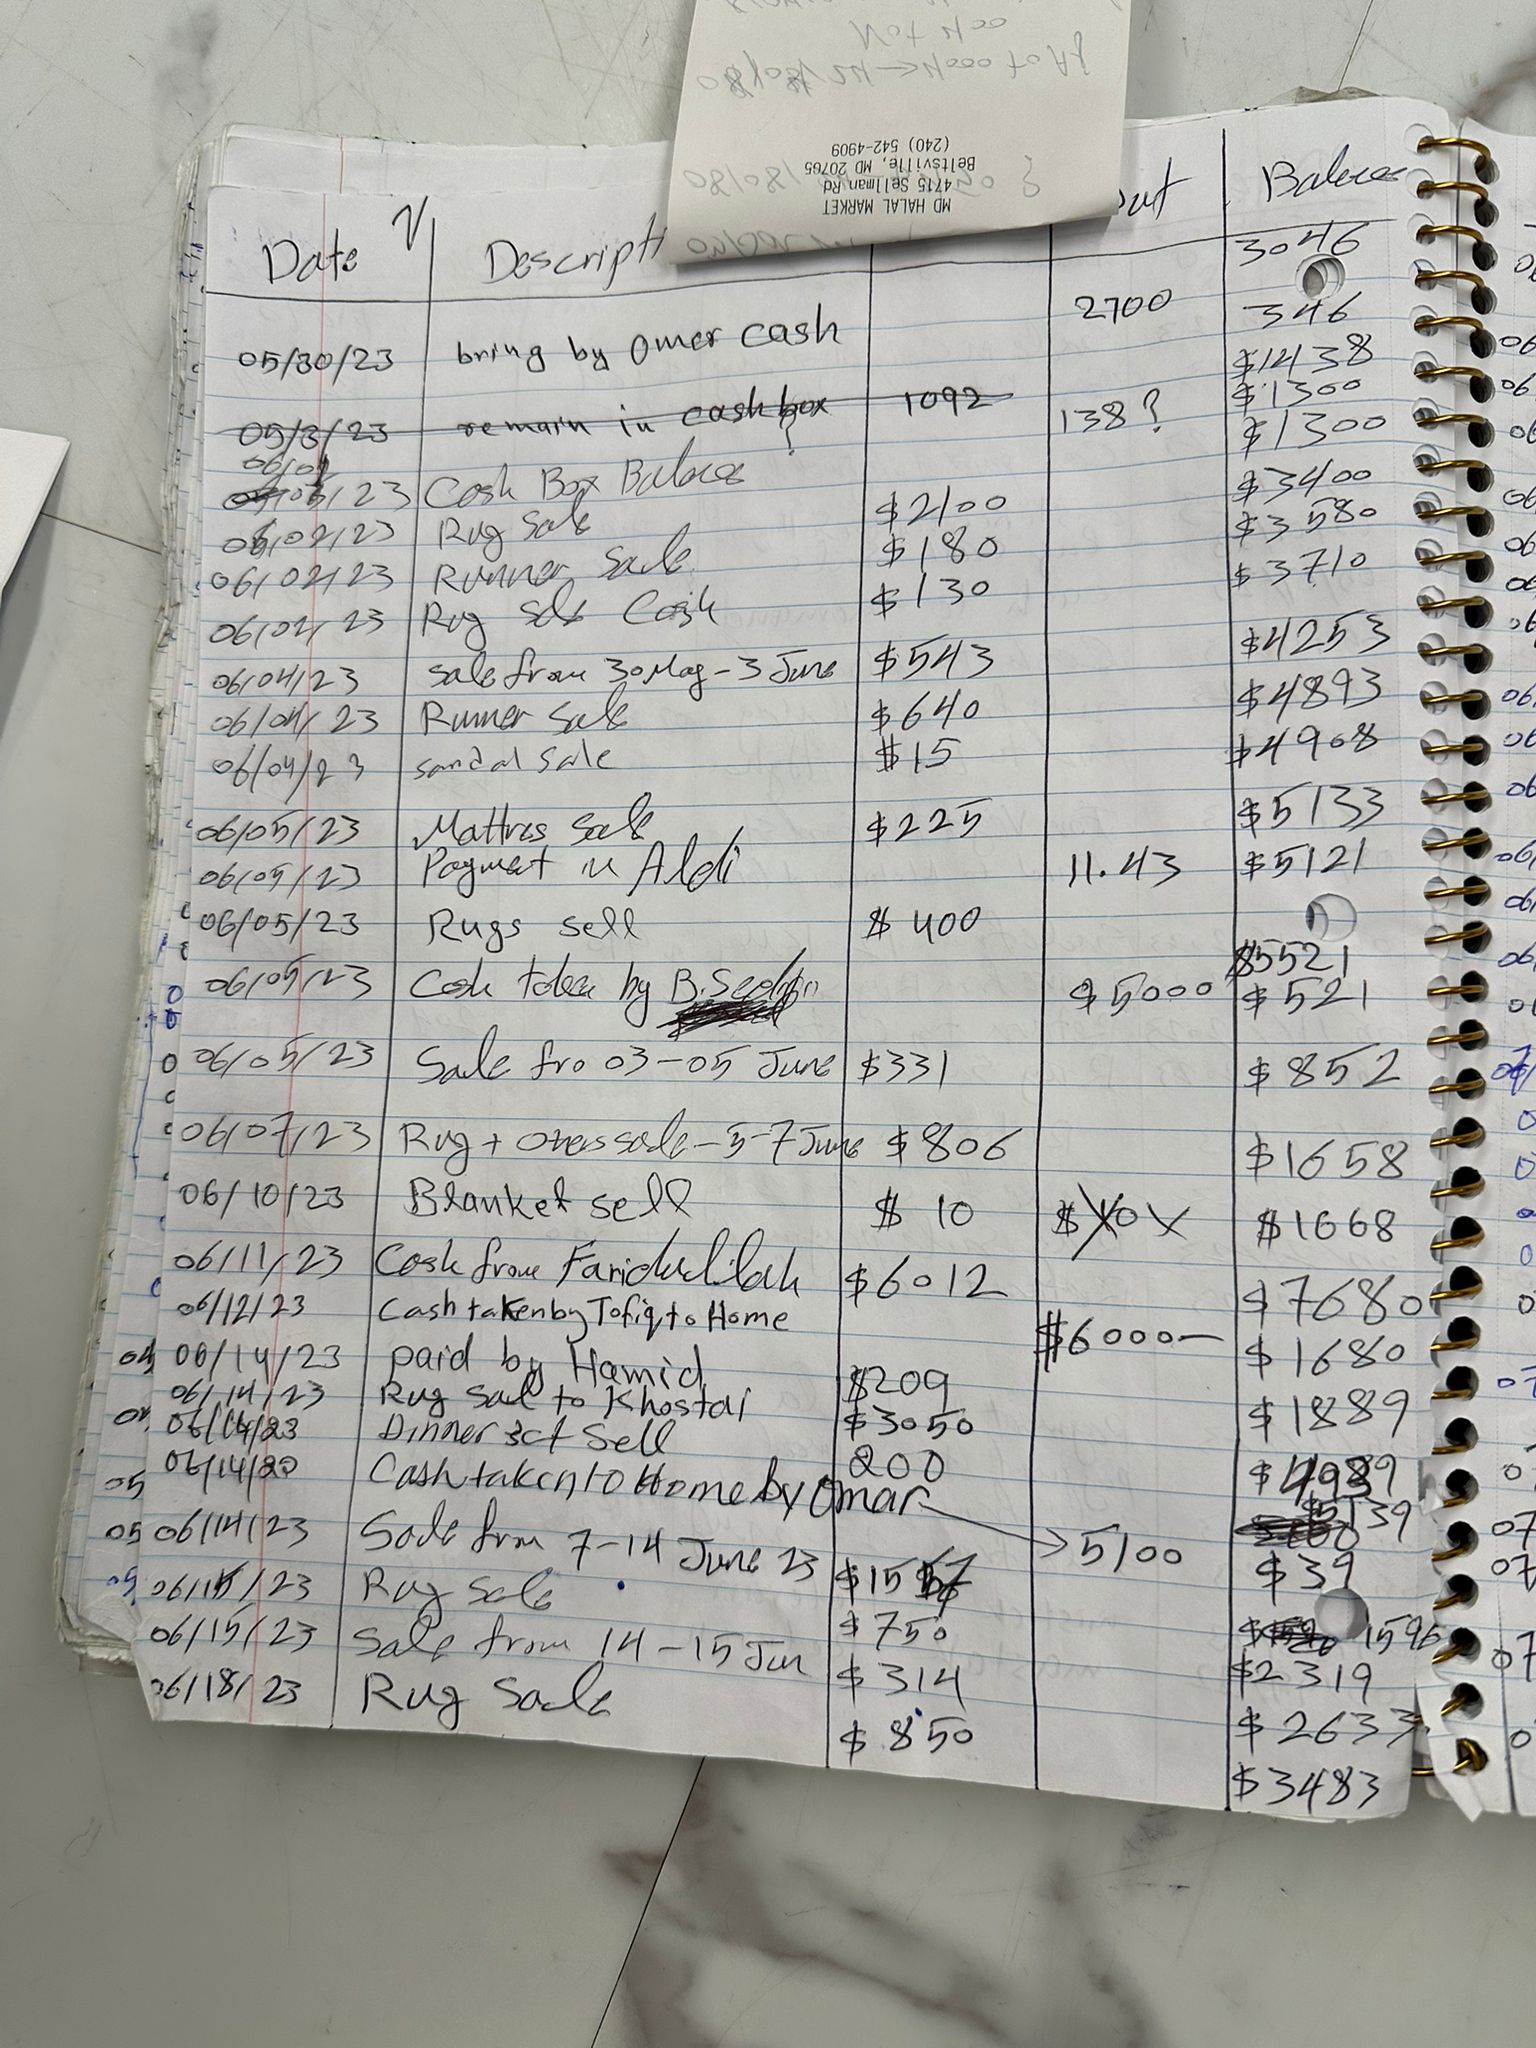 MD HALAL MARKET
4715 Sellman Rd
Beltsville, MD 20705
(240) 542-4909
Date Descripti out Balance
3046
05/30/23 bring by Omer cash 2700 346
$1438
05/3/23 remain in cash box 1092 138? $1300
06/01/23 Cash Box Balance $1300
06/02/23 Rug Sale $2100 $3400
06/02/23 Runner Sale $180 $3580
06/02/23 Rug Sale Cash $130 $3710
06/04/23 Sale from 30 May - 3 June $543 $4253
06/04/23 Runner Sale $640 $4893
06/04/23 sandal sale $15 $4908
06/05/23 Mattres Sale $225 $5133
06/05/23 Payment in Aldi 11.43 $5121
06/05/23 Rugs sell $400 $5521
06/05/23 Cash taken by $5000 $521
06/05/23 Sale fro 03-05 June $331 $852
06/07/23 Rug + sale - 5-7 June $806 $1658
06/10/23 Blanket sell $10 $1668
06/11/23 Cash from Faridullah $6012 $7680
06/12/23 Cash taken by Tofiq to Home $6000- $1680
06/14/23 paid by Hamid $209 $1889
06/14/23 Rug Sale to Khostai $3050
06/14/23 Dinner set Sell 200 $5139
06/14/23 Cash taken to Home by Omar → 5100 $39
06/14/23 Sale from 7-14 June 23 $1557 1596
06/15/23 Rug Sale $750 $2319
06/15/23 Sale from 14-15 Jun $314 $2633
06/18/23 Rug Sale $850 $3483